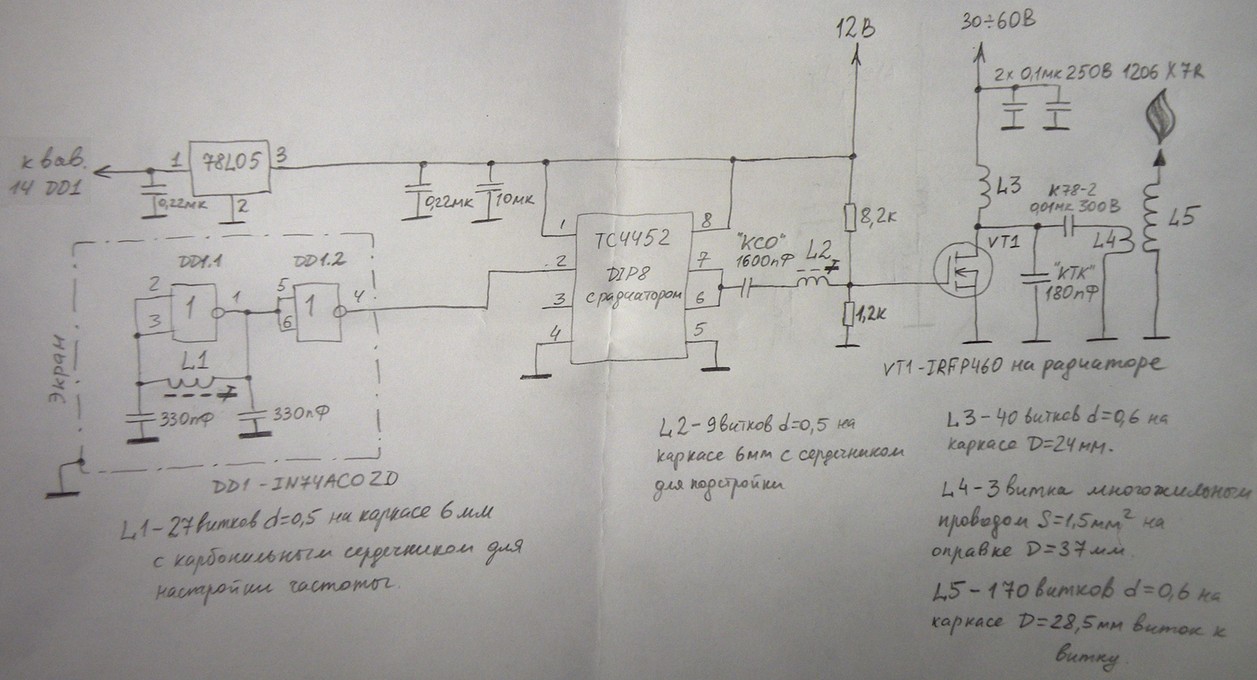 12В
30÷60В
2х 0,1мк 250В 1206 X7R
к выв.
14 DD1
1
78L05
3
2
0,22мк
0,22мк
10мк
8,2к
L3
К78-2
0,01мк 300В
L4
L5
VT1
"КТК"
180пФ
1
TC4452
8
2
DIP8
7
с радиатором
3
6
4
5
"КСО"
1600пФ
L2
1,2к
DD1.1
DD1.2
2
3
1
1
5
6
1
4
L1
Экран
330пФ
330пФ
DD1 - IN74AC02D
VT1 - IRFP460 на радиаторе
L1 - 27 витков d=0,5 на каркасе 6мм
с карбонильным сердечником для
настройки частоты.
L2 - 9 витков d=0,5 на
каркасе 6мм с сердечником
для подстройки
L3 - 40 витков d=0,6 на
каркасе D=24мм.
L4 - 3 витка многожильным
проводом S=1,5мм² на
оправке D=37мм.
L5 - 170 витков d=0,6 на
каркасе D=28,5мм виток к
витку.